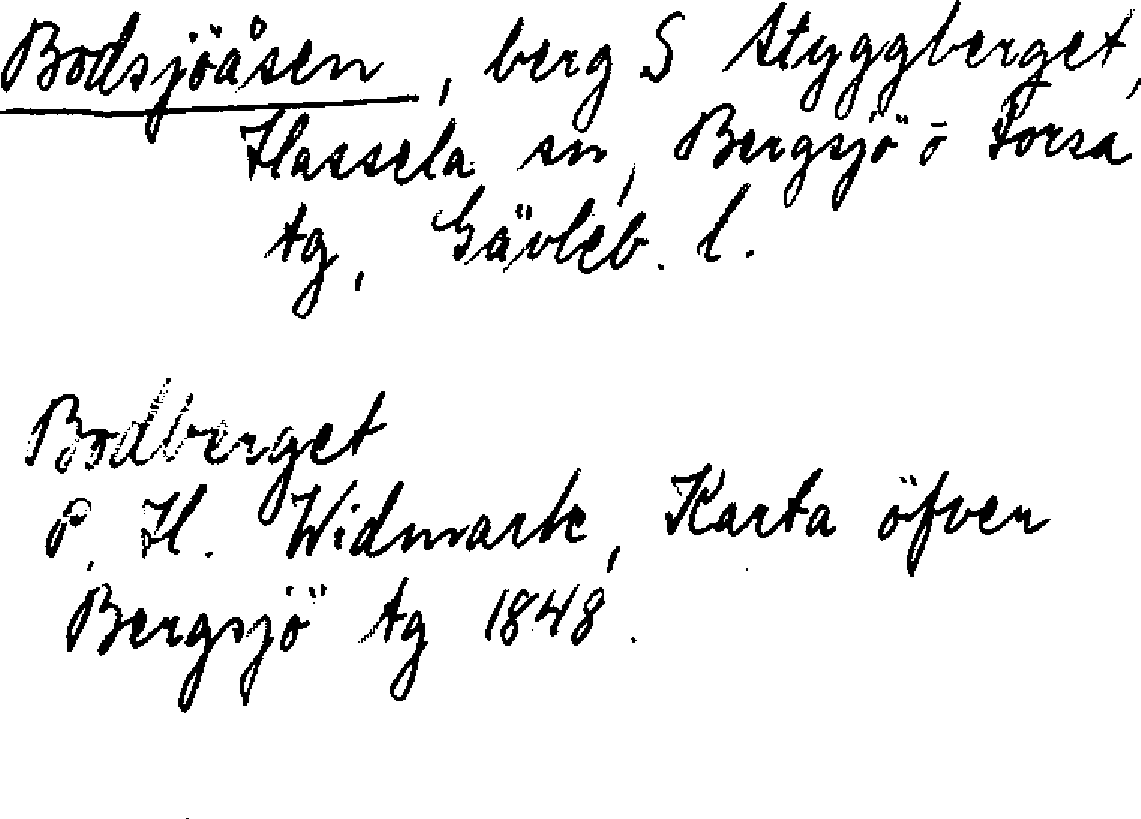 Bodsjöåsen, berg S Styggberget,
Hassela sn, Bergsjö o Forsa
tg, Gävleb. l.
Bodberget
P. H. Widmark, Karta öfver
Bergsjö tg 1848.